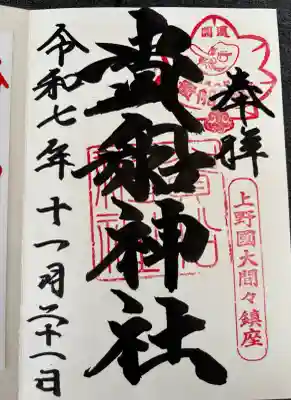 奉拝
開運
上野國大間々鎮座
貴船神社
令和七年十一月二十一日